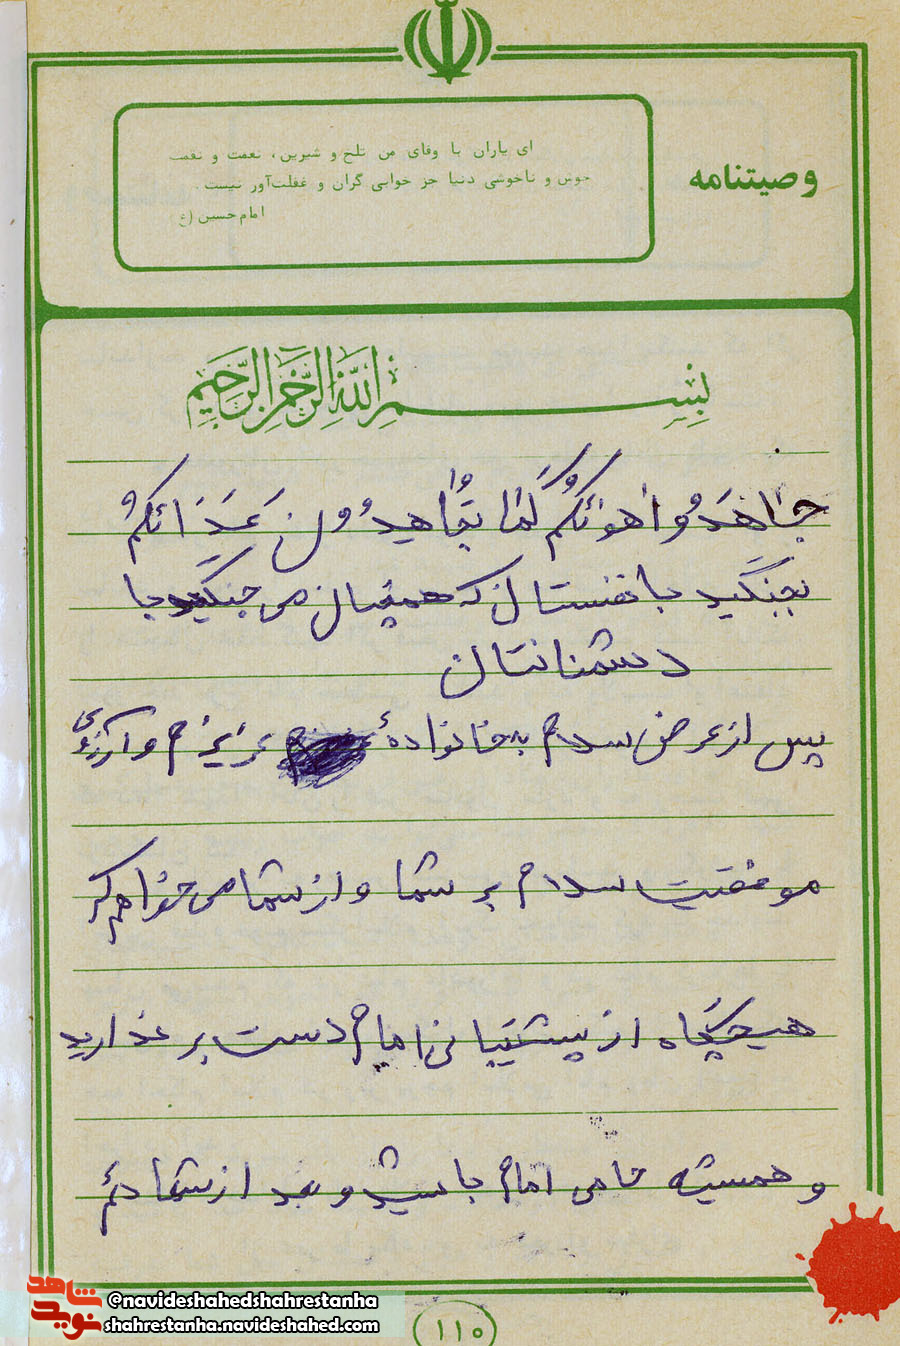 وصیتنامه
ای یاران با وفای من تلخ و شیرین، نعمت و نقمت
خوش و ناخوشی دنیا جز خوابی گران و غفلت‌آور نیست.
امام حسین (ع)
بِسْمِ اللَّهِ الرَّحْمٰنِ الرَّحِیمِ
جاهَدُوا هوائکُم کَما تُجاهِدُون عَدَائکُم
بجنگید با نفستان که همچنان می جنگید با
دشمنانتان
پس از عرض سلام به خانوادهٔ عزیزم و آرزوی
موفقیت سلام بر شما و از شما می خواهم که
هیچگاه از پشتیبانی امام دست بر ندارید
و همیشه حامی امام باشید و بعد از شهادتم
۱۱۰
شاهد
نوید
@navideshahedshahrestanha
shahrestanha.navideshahed.com